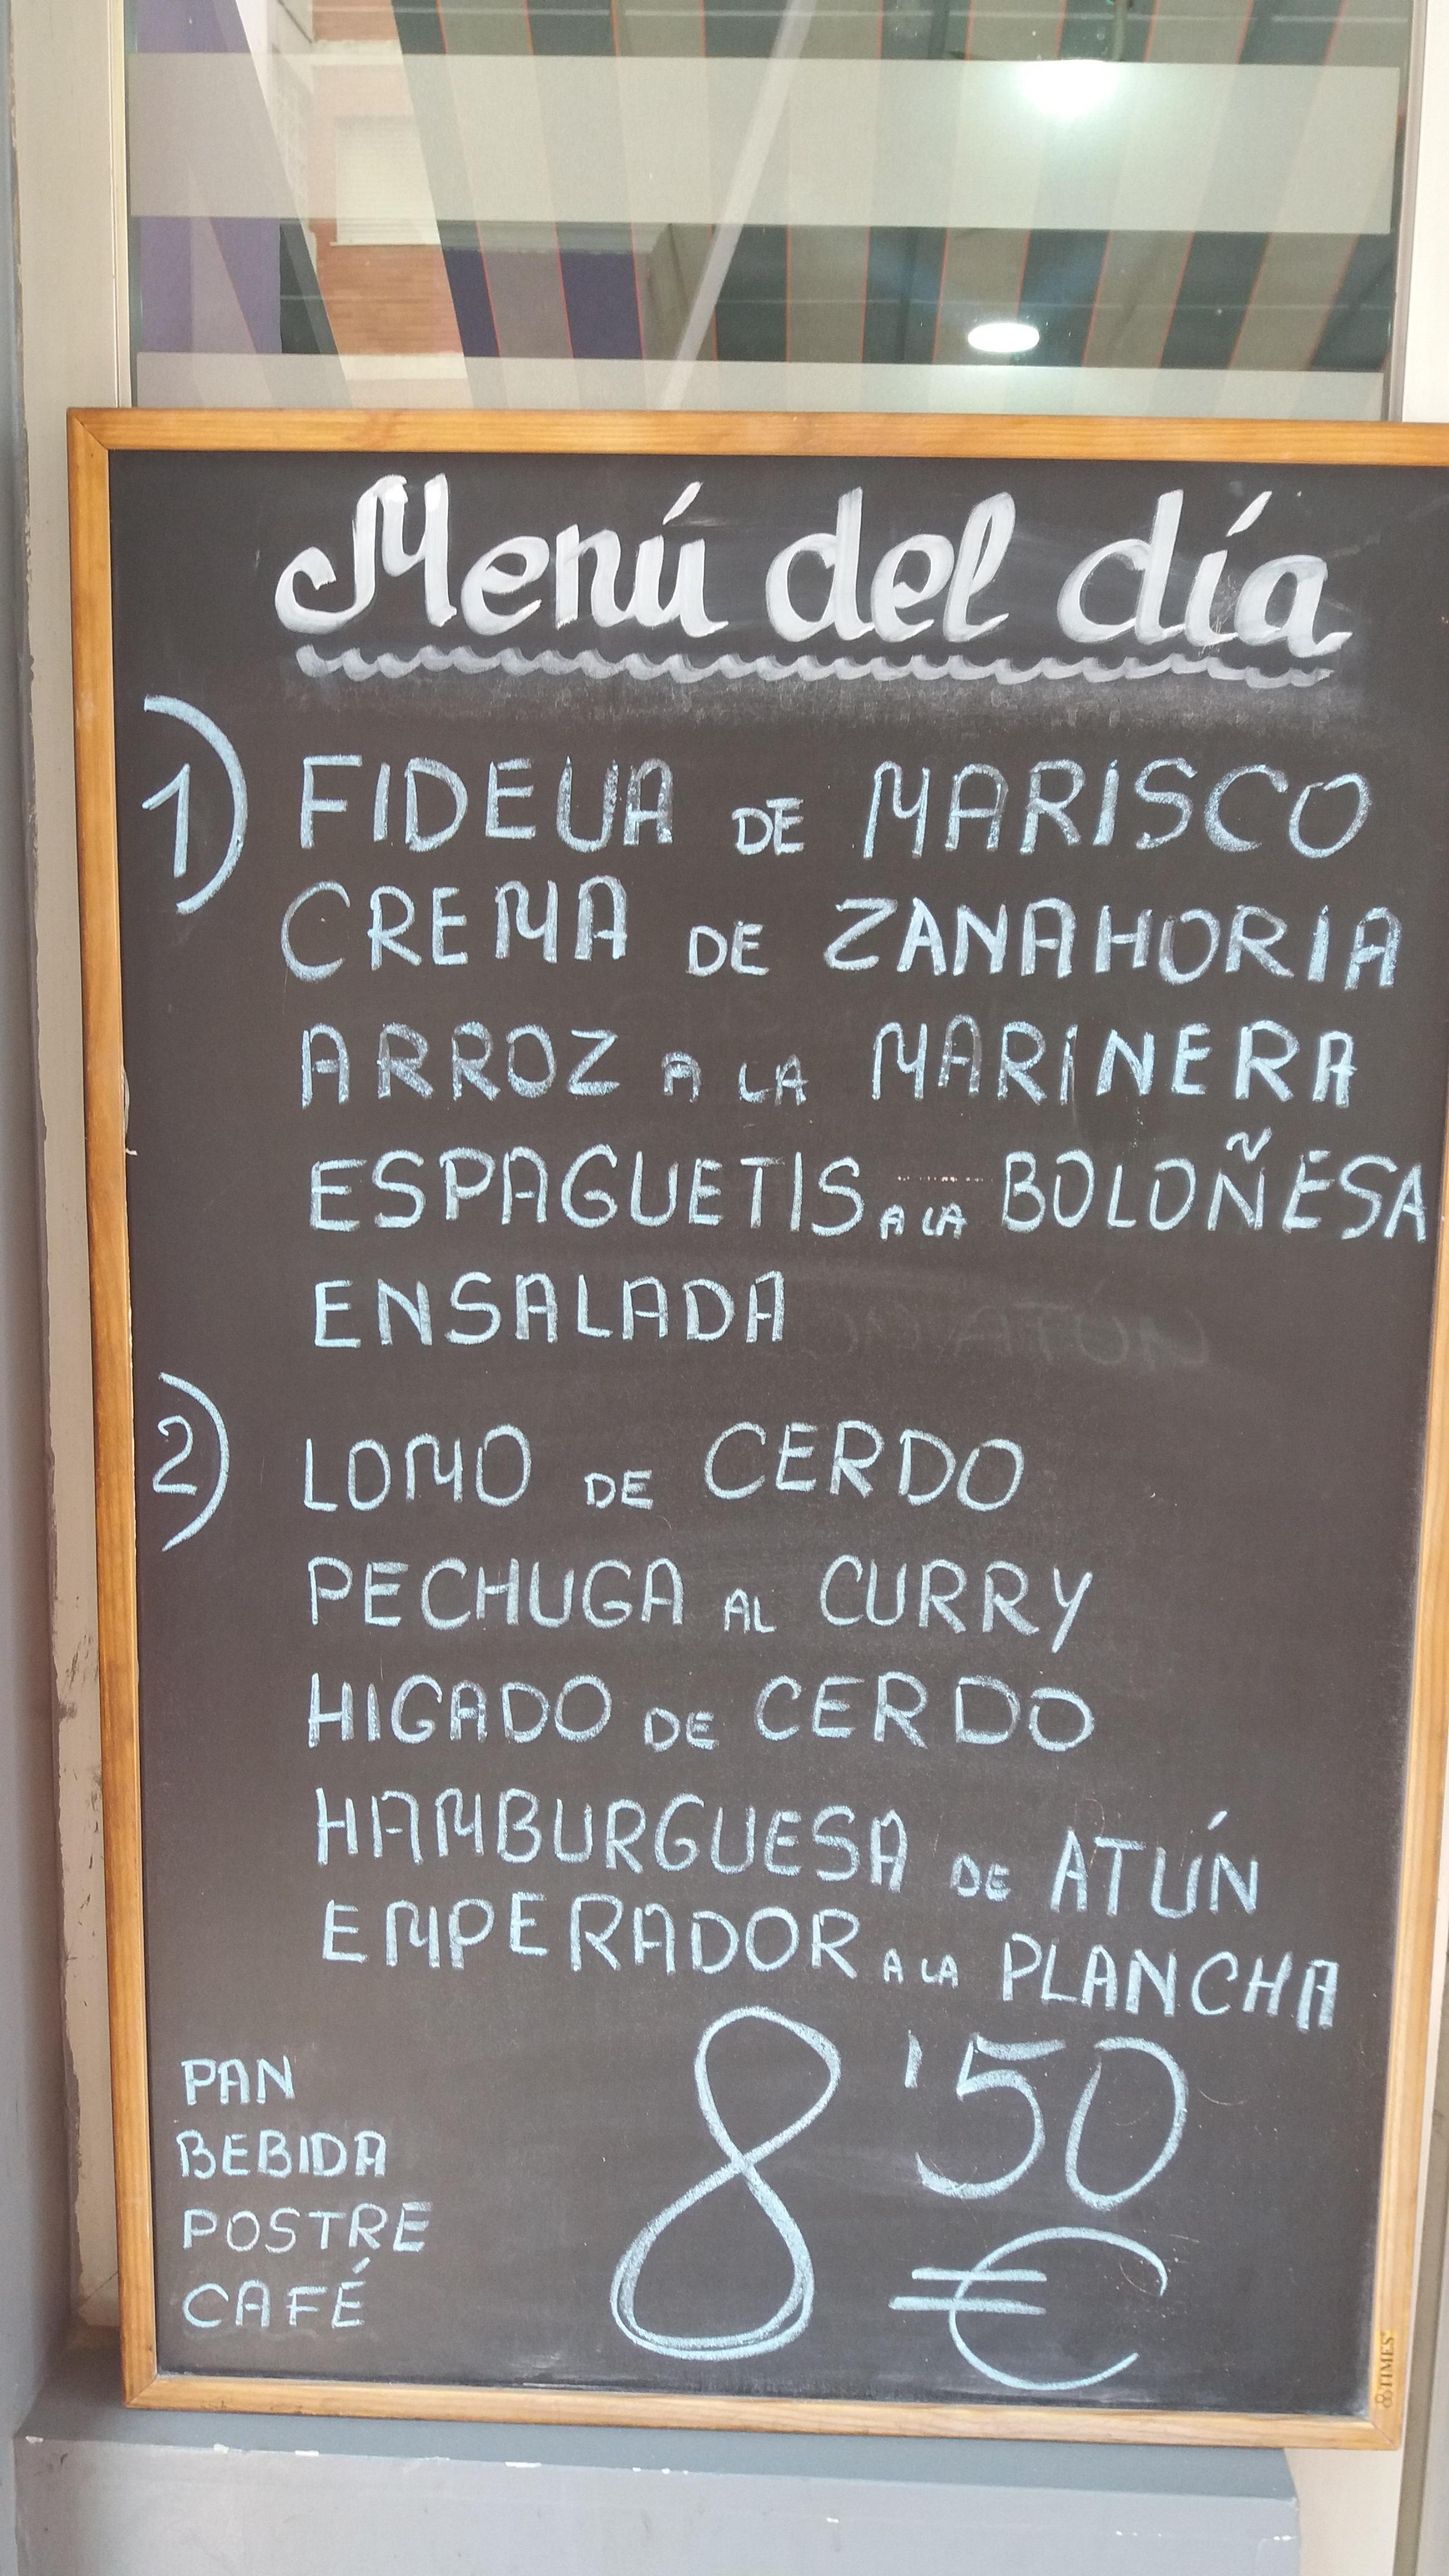 Menú del día
1) FIDEUA DE MARISCO
CREMA DE ZANAHORIA
ARROZ A LA MARINERA
ESPAGUETIS A LA BOLOÑESA
ENSALADA
2) LOMO DE CERDO
PECHUGA AL CURRY
HIGADO DE CERDO
HAMBURGUESA DE ATÚN
EMPERADOR A LA PLANCHA
PAN
BEBIDA
POSTRE
CAFÉ
8'50
€
TIMES